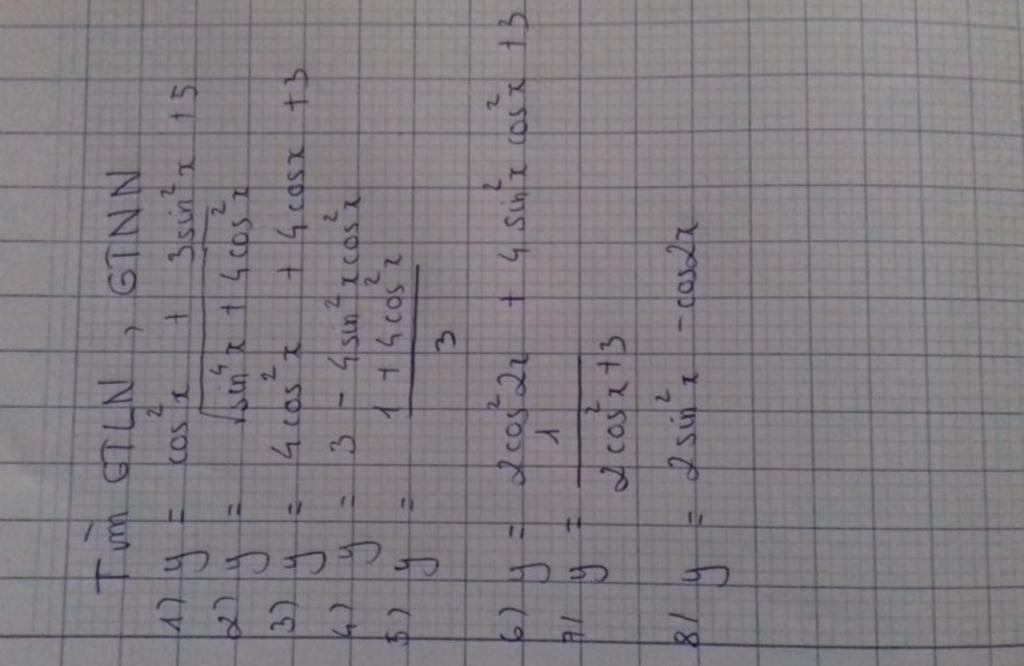 Tìm GTLN, GTNN
1) y = cos²x + 3sin²x + 5
2) y = √(sin⁴x + 4cos²x)
3) y = 4cos²x + 4cosx + 3
4) y = 3 - 4sin²xcos²x
5) y = (1 + 4cos²x)/3
6) y = 2cos²2x + 4sin²x cos²x + 3
7) y = 1/(2cos²x+3)
8) y = 2sin²x - cos2x